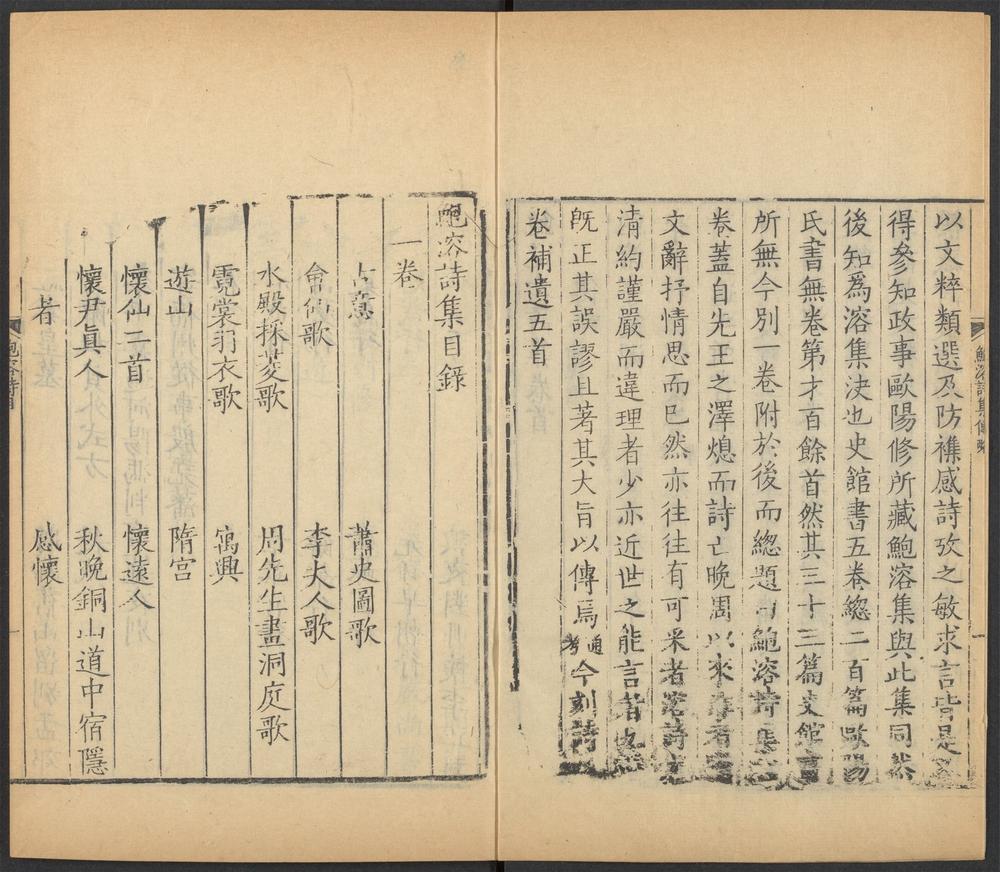 以文粹類選及防襍感詩攷之敏求言皆是
得參知政事歐陽修所藏鮑溶集與此集同然
後知爲溶集决也史館書五卷緫二百篇歐陽
氏書無卷第才百餘首然其三十三篇史館書
所無今別一卷附於後而緫題曰鮑溶詩集
卷蓋自先王之澤熄而詩亡晚周以來作者
文辭抒情思而已然亦往往有可采者溶詩
清約謹嚴而違理者少亦近世之能言者也
旣正其誤謬且著其大旨以傳焉通考今刻詩
卷補遺五首
鮑溶詩集目錄
一卷
古意 蕭史圖歌
會仙歌 李夫人歌
水殿採菱歌 周先生畫洞庭歌
霓裳羽衣歌 寓興
遊山 隋宮
懷仙二首 懷遠人
懷尹眞人 秋晚銅山道中宿隱
者 感懷
鮑溶詩目
一